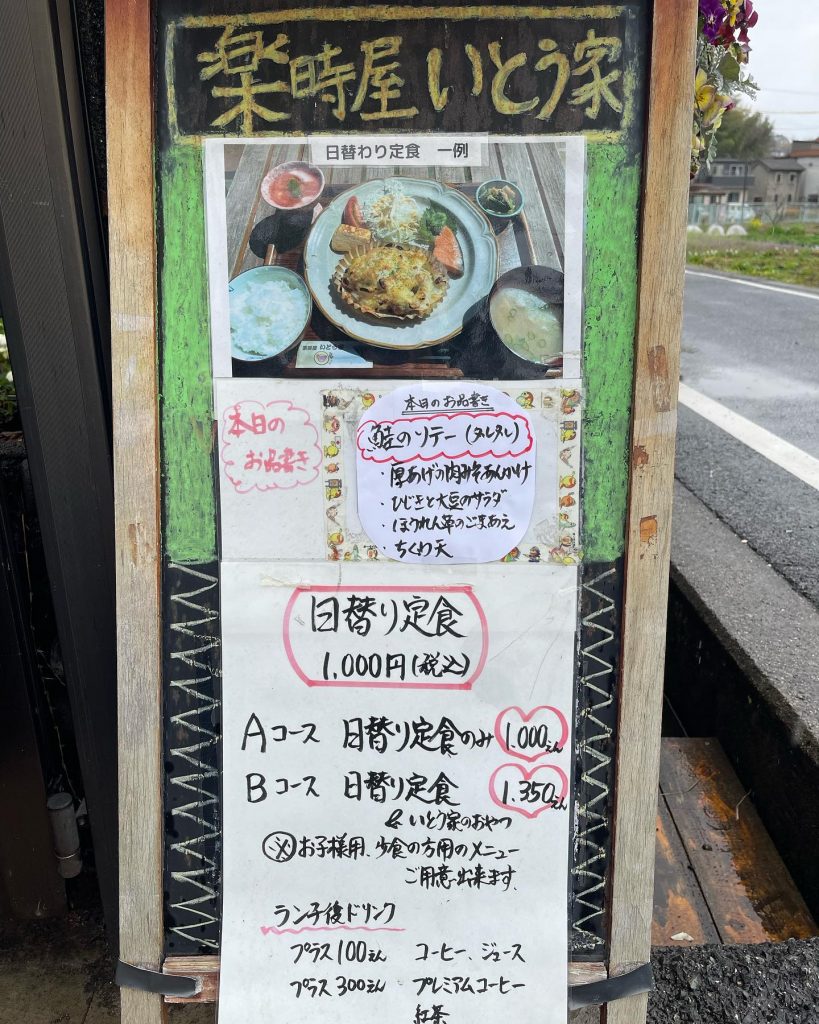 楽時屋 いとう家
日替わり定食 一例
本日の
お品書き
本日のお品書き
鮭のソテー(タレタレ)
・厚あげの肉みそあんかけ
・ひじきと大豆のサラダ
・ほうれん草のごまあえ
・ちくわ天
日替り定食
1,000円(税込)
Aコース 日替り定食のみ 1.000えん
Bコース 日替り定食 1.350えん
& いとう家のおやつ
※お子様用、少食の方用のメニュー
ご用意出来ます.
ランチ後ドリンク
プラス100えん コーヒー、ジュース
プラス300えん プレミアムコーヒー
紅茶